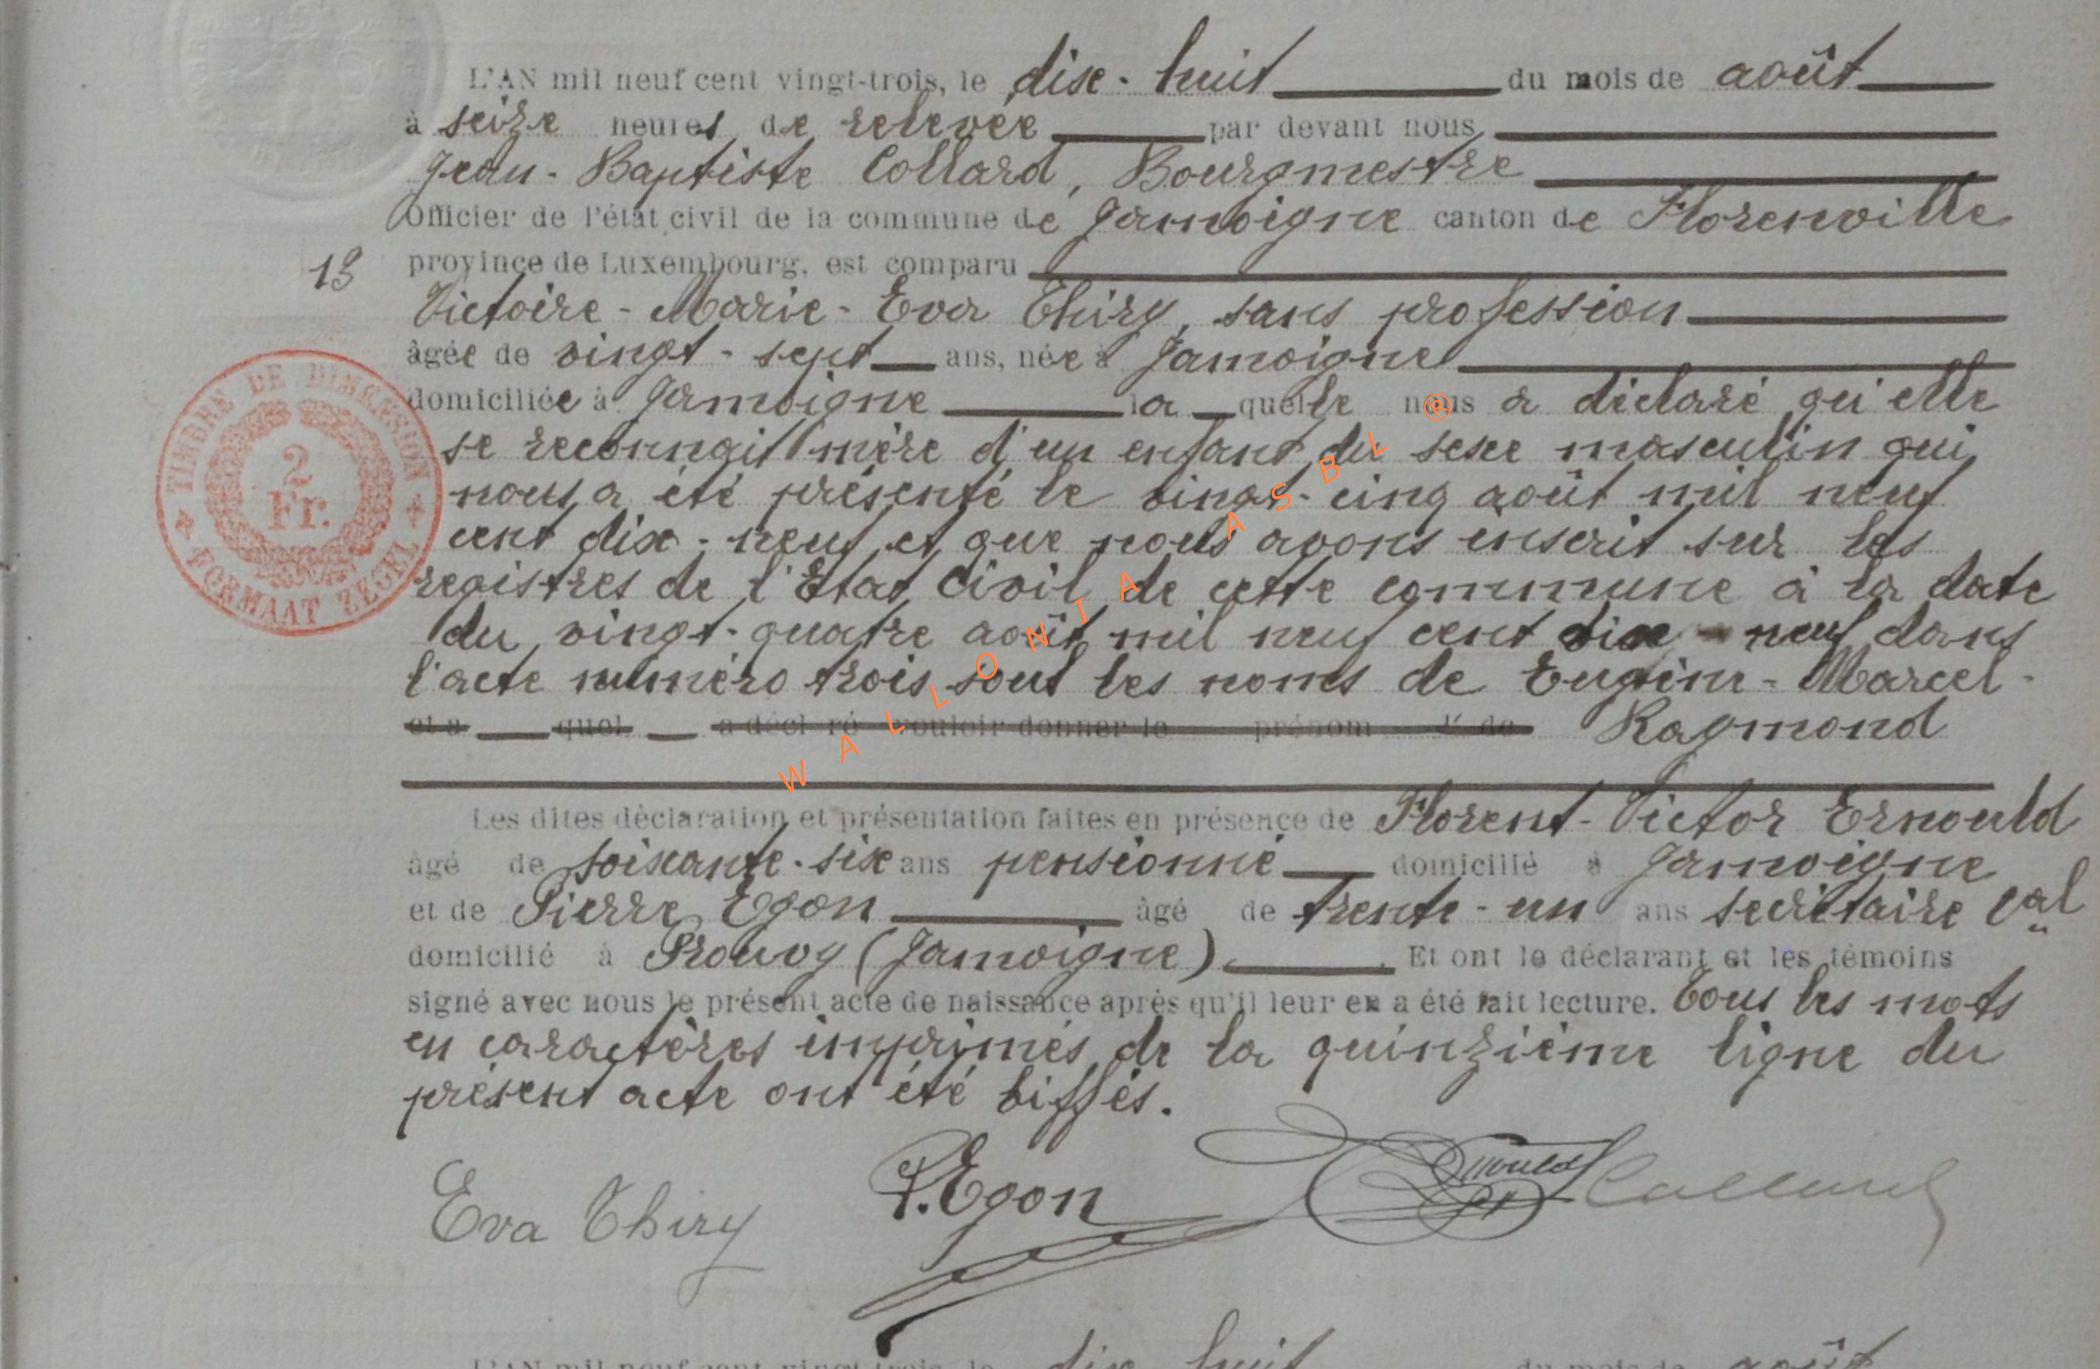 L'AN mil neuf cent vingt-trois, le dix-huit du mois de août
à seize heures de relevée par devant nous
Jean-Baptiste Collard, Bourgmestre
Officier de l'état civil de la commune de Jamoigne canton de Florenville
13 province de Luxembourg, est comparu
Victoire-Marie-Eva Thiry, sans profession
âgée de vingt-sept ans, née à Jamoigne
domiciliée à Jamoigne la quelle nous a déclaré qu'elle
se reconnait mère d'un enfant du sexe masculin qui
nous a été présenté le vingt-cinq août mil neuf
cent dix-neuf et que nous avons inscrit sur les
registres de l'Etat Civil de cette commune à la date
du vingt-quatre août mil neuf cent dix-neuf dans
l'acte numéro trois sous les noms de Eugène-Marcel-
et a quel a décl ré vouloir donner le prénom de Raymond
Les dites déclaration et présentation faites en présence de Florent-Victor Ernould
âgé de soixante-six ans pensionné domicilié à Jamoigne
et de Pierre Egon âgé de trente-un ans secrétaire cal
domicilié à Prouvy (Jamoigne). Et ont le déclarant et les témoins
signé avec nous le présent acte de naissance après qu'il leur en a été fait lecture. Tous les mots
en caractères imprimés de la quinzième ligne du
présent acte ont été biffés.
Eva Thiry P. Egon Ernould Collard
TIMBRE DE DIMENSION
2
Fr.
FORMAAT ZEGEL
WALLONIA ASBL ®
L'AN mil neuf cent vingt-trois, le dix huit du mois de août